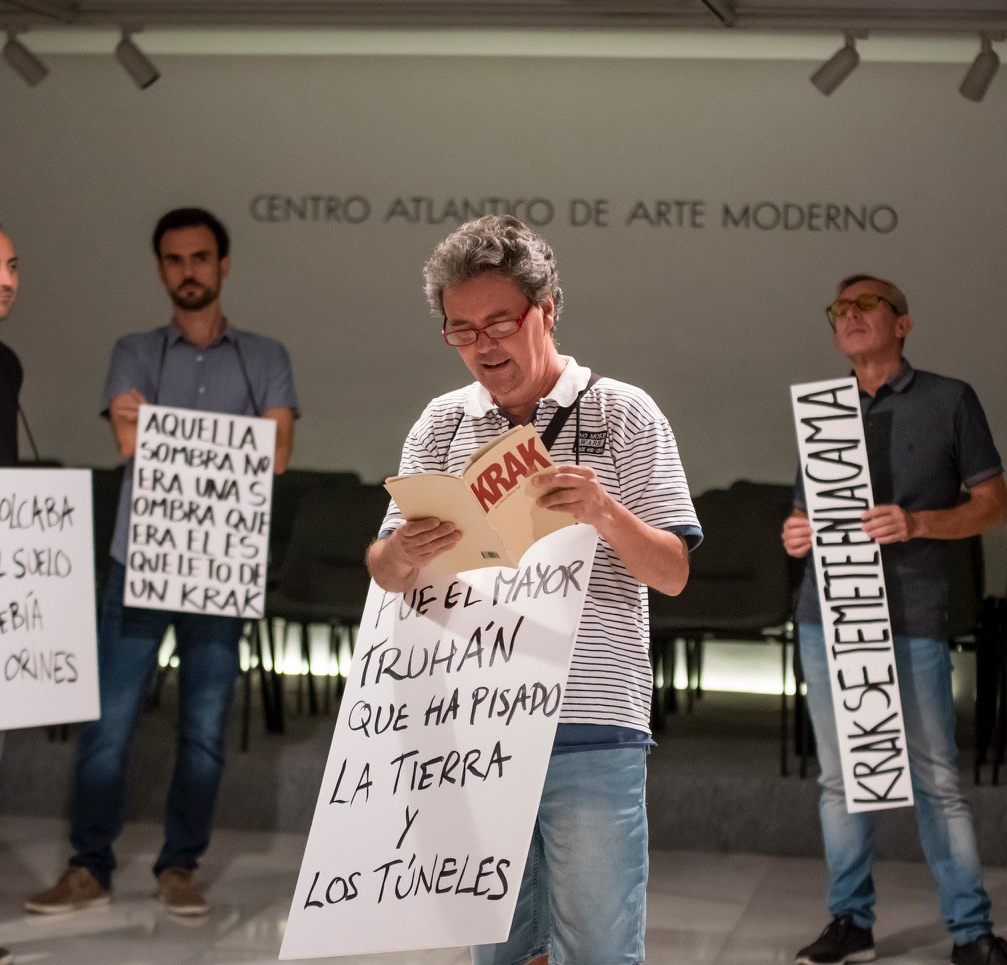 CENTRO ATLANTICO DE ARTE MODERNO
OLCABA
L SUELO
EBÍA
ORINES
AQUELLA
SOMBRA NO
ERA UNA S
OMBRA QUE
ERA EL ES
QUE LETO DE
UN KRAK
KRAK
NO MORE
WARS
FUE EL MAYOR
TRUHÁN
QUE HA PISADO
LA TIERRA
Y
LOS TÚNELES
KRAK SE TEMETENIACAMA